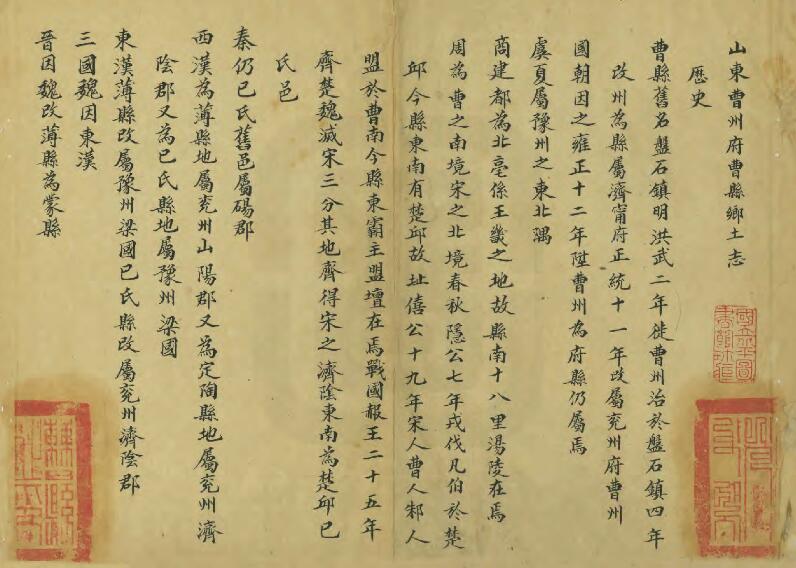 山東曹州府曹縣鄉土志
歷史
曹縣舊名盤石鎮明洪武二年徙曹州治於盤石鎮四年
改州為縣屬濟甯府正統十一年改屬兖州府曹州
國朝因之雍正十二年陞曹州為府縣仍屬焉
虞夏屬豫州之東北隅
商建都為北亳係王畿之地故縣南十八里湯陵在焉
周為曹之南境宋之北境春秋隱公七年戎伐凡伯於楚
邱今縣東南有楚邱故址僖公十九年宋人曹人邾人
盟於曹南今縣東霸主盟壇在焉戰國報王二十五年
齊楚魏滅宋三分其地齊得宋之濟陰東南為楚邱已
氏邑
秦仍已氏舊邑屬碭郡
西漢為薄縣地屬兖州山陽郡又為定陶縣地屬兖州濟
陰郡又為已氏縣地屬豫州梁國
東漢薄縣改屬豫州梁國已氏縣改屬兖州濟陰郡
三國魏因東漢
晉因魏改薄縣為蒙縣